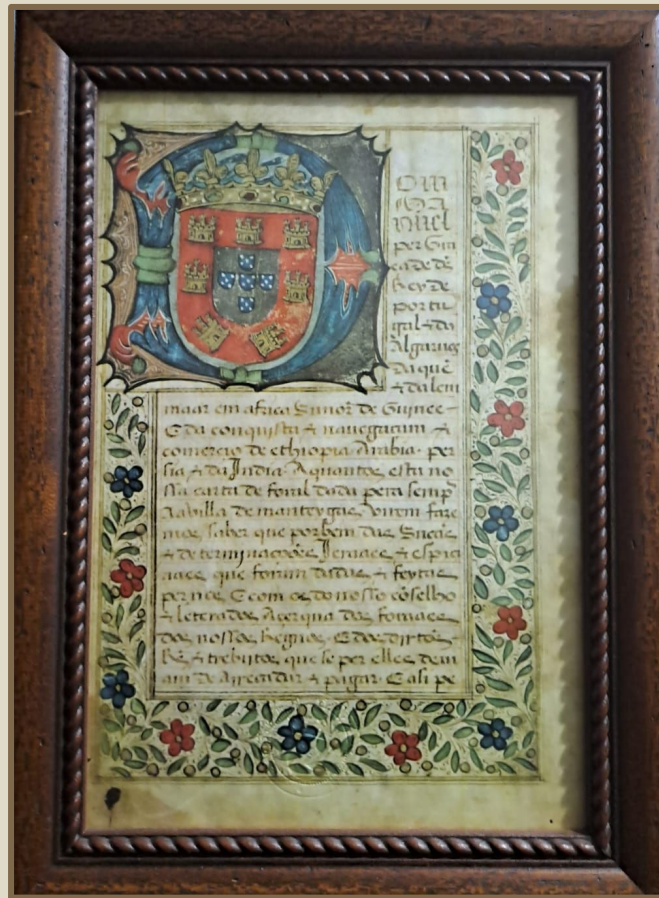 Om
Ma
nuel
per Gra
ça de ds̃
Rey de
portu
gal ⁊ do
Algarves
daquē
⁊ dalem
maar em africa Senhor de Guinee
E da conquista ⁊ navegaçam ⁊
comercio de ethiopia Arabia per
sia ⁊ da India. A quantos esta no
ssa carta de foral dada pera semp̃
a villa de manteygas virem faze
mos saber que por bem das Sn̄cas
⁊ determinaçoões Jeraaes ⁊ espici
aaes que foram dadas ⁊ feytas
per nos E com os do nosso cōselho
⁊ leterados Açerqua dos foraaes
dos nossos Regnos. E dos dirtos
⁊ trebutos que se per elles devi
am de Arrecadar ⁊ pagar. E asi pe